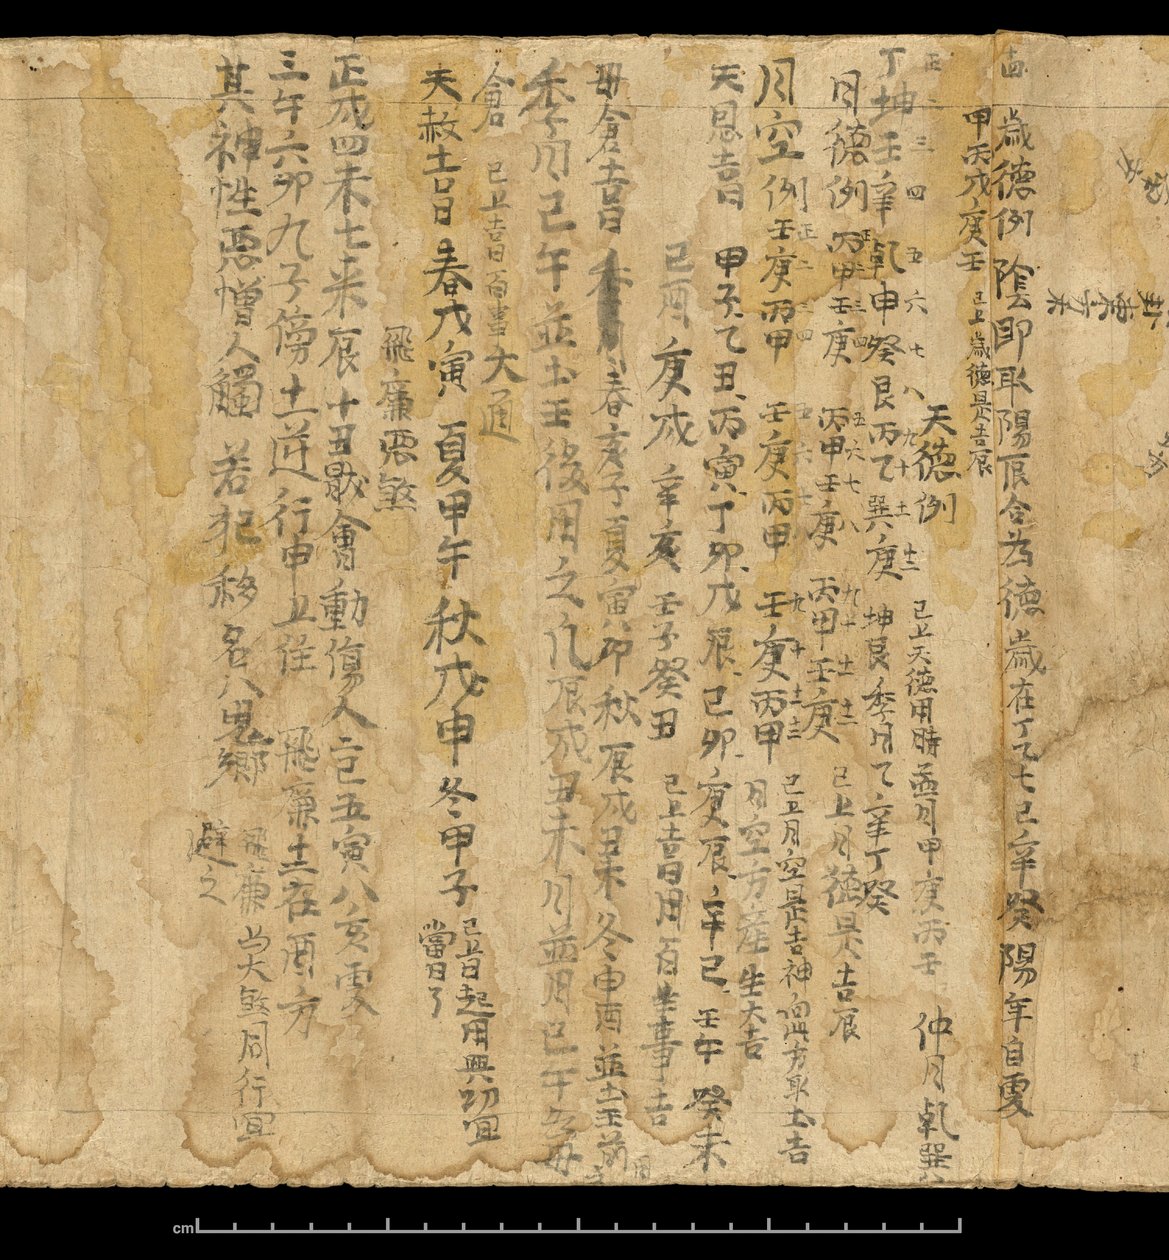 歲德例 陰即取陽辰合為德歲在丁乙七巳辛癸陽年自處
甲丙戊庚壬 已上歲德是吉辰
天德例 已上天德用時孟月甲庚丙壬 仲月乾巽
正二三四五六七八九十十一十二
丁坤壬辛乾甲癸艮丙乙巽庚 坤艮季月乙辛丁癸
月德例 丙甲壬庚 丙甲壬庚 丙甲壬庚 已上月德是吉辰
正二三四 五六七八 九十十一十二
月空例 壬庚丙甲 壬庚丙甲 壬庚丙甲 已上月空是吉神向此方取土吉
正二三四 五六七 九十十一十二
月空方產生大吉
天恩吉日 甲子乙丑丙寅丁卯戊辰己卯庚辰辛巳壬午癸未
己酉庚戌辛亥壬子癸丑 已上吉日用百事吉
母倉吉日 春亥子夏寅卯秋辰戌丑未冬申酉並土王前用
季月巳午並土王後用之凡辰戌丑未月並用巳午為母
倉 已上吉日百事大通
天赦吉日 春戊寅 夏甲午 秋戊申 冬甲子 已上日起用興切宜
當日了
飛廉惡煞
正戌四未七來辰十丑歇會動傷人二巳五寅八亥處
三午六卯九子傍十一逆行申上往 飛廉土在酉方
其神性惡憎人觸 若犯移名入鬼鄉 飛廉與大煞同行宜
避之